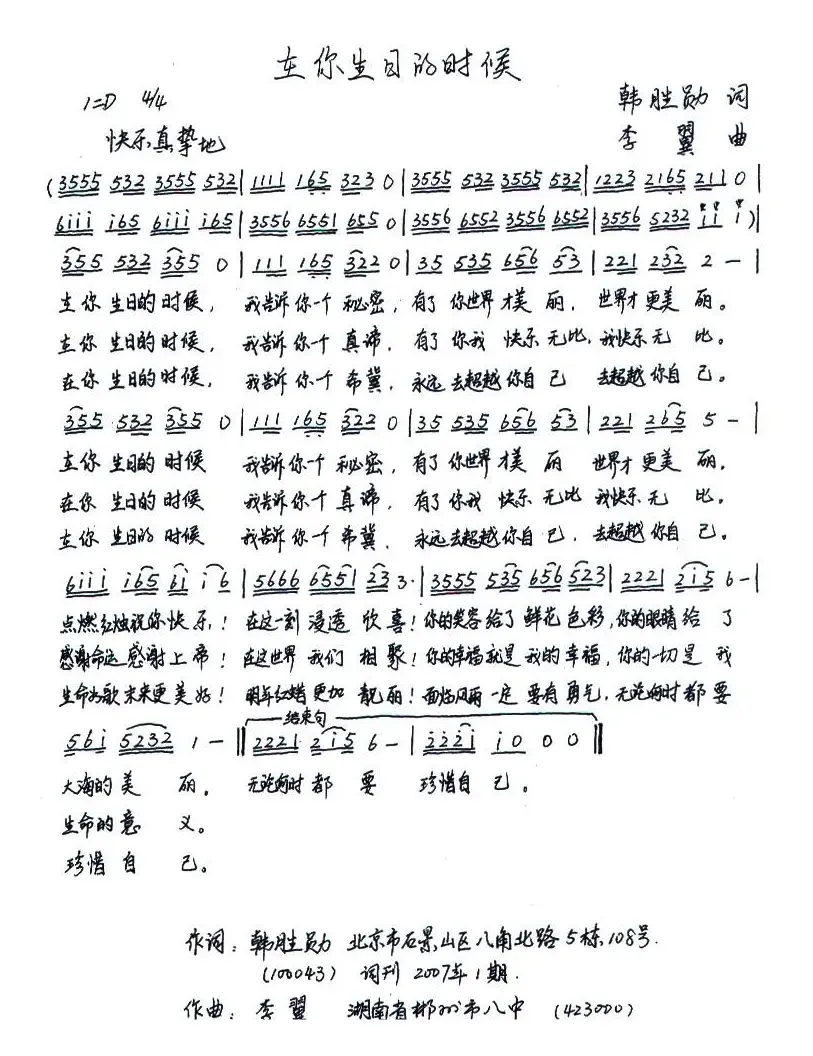 在你生日的时候
1=D 4/4 韩胜勋 词
快乐,真挚地 李 翼 曲
(3555 532 3555 532|1111 165 323 0|3555 532 3555 532|1223 2165 211 0|
6111 165 6111 165|3556 6551 655 0|3556 6552 3556 6552|3556 5232 11 1)|
355 532 355 0|111 165 322 0|35 535 656 53|221 232 2 -|
在你 生日的 时候, 我告诉你一个 秘密, 有了 你世界才美 丽, 世界才更美 丽。
在你 生日的 时候, 我告诉你一个 真谛, 有了 你我 快乐 无比, 我快乐无 比。
在你 生日的 时候, 我告诉你一个 希冀, 永远 去超越你自 己 去超越你自 己。
355 532 355 0|111 165 322 0|35 535 656 53|221 265 5 -|
在你 生日的 时候 我告诉你一个 秘密, 有了 你世界才美 丽 世界才更美 丽,
在你 生日的 时候 我告诉你一个 真谛, 有了 你我 快乐 无比 我快乐无 比。
在你 生日的 时候 我告诉你一个 希冀, 永远去超越你自 己, 去超越你自 己。
6111 165 61 16|5666 6551 23 3·|3555 535 656 523|2221 215 6-|
点燃红烛祝你快乐! 在这一刻 浸透 欣喜! 你的笑容给了 鲜花色彩,你的眼睛给 了
感谢命运感谢上帝! 在这世界 我们 相聚! 你的幸福就是 我的幸福, 你的一切是 我
生命如歌未来更美好! 明年红烛更加 靓丽! 面临风雨一定 要有勇气, 无论何时都 要
结束句
561 5232 1 -‖2221 215 6 -|2221 10 0 0‖
大海的美 丽。 无论何时都 要 珍惜自 己。
生命的意 义。
珍惜自 己。
作词: 韩胜勋 北京市石景山区八角北路5栋,108号.
(100043) 词刊 2007年1期.
作曲: 李 翼 湖南省郴州市八中 (423000)